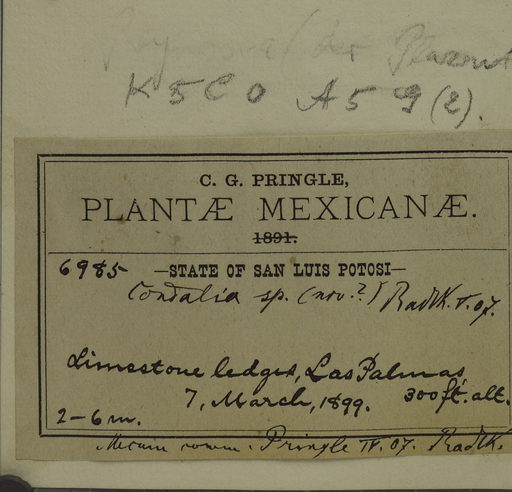 K 5 C 0 A 5 G (2).
C. G. PRINGLE,
PLANTÆ MEXICANÆ.
1891.
6985 —STATE OF SAN LUIS POTOSI—
Condalia sp. (nov.?) Radlk. V. 07.
Limestone ledges, Las Palmas,
7, March, 1899. 300 ft. alt.
2–6 m.
Mecum comm. Pringle IV. 07. Radlk.